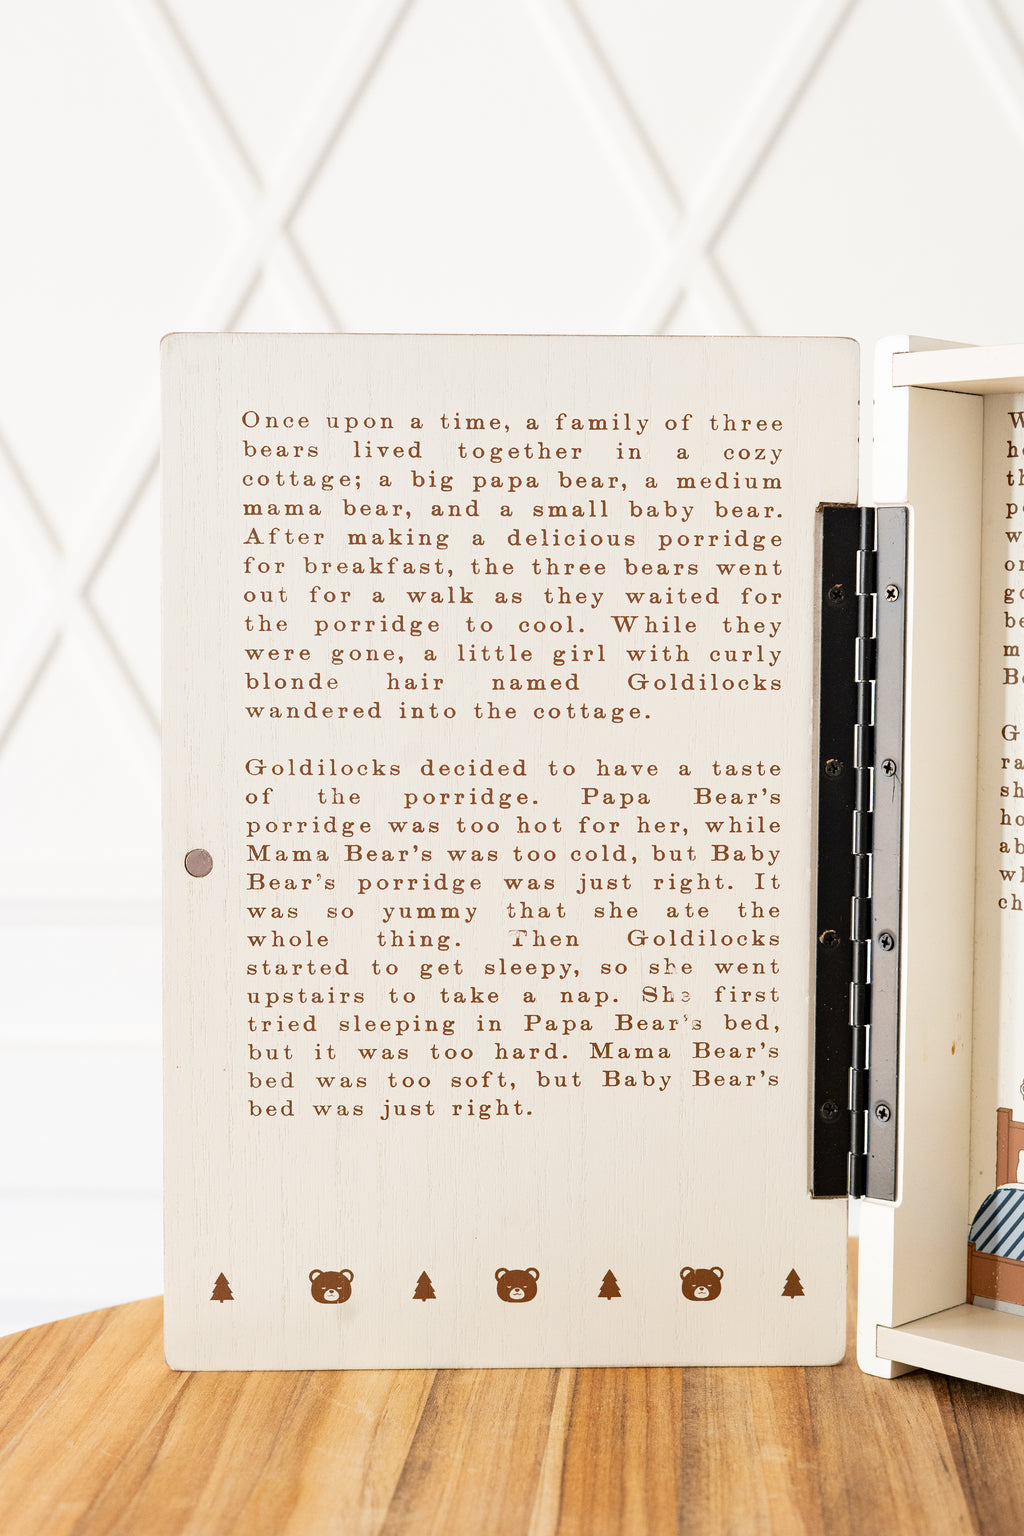 Once upon a time, a family of three
bears lived together in a cozy
cottage; a big papa bear, a medium
mama bear, and a small baby bear.
After making a delicious porridge
for breakfast, the three bears went
out for a walk as they waited for
the porridge to cool. While they
were gone, a little girl with curly
blonde hair named Goldilocks
wandered into the cottage.
Goldilocks decided to have a taste
of the porridge. Papa Bear's
porridge was too hot for her, while
Mama Bear's was too cold, but Baby
Bear's porridge was just right. It
was so yummy that she ate the
whole thing. Then Goldilocks
started to get sleepy, so she went
upstairs to take a nap. She first
tried sleeping in Papa Bear's bed,
but it was too hard. Mama Bear's
bed was too soft, but Baby Bear's
bed was just right.